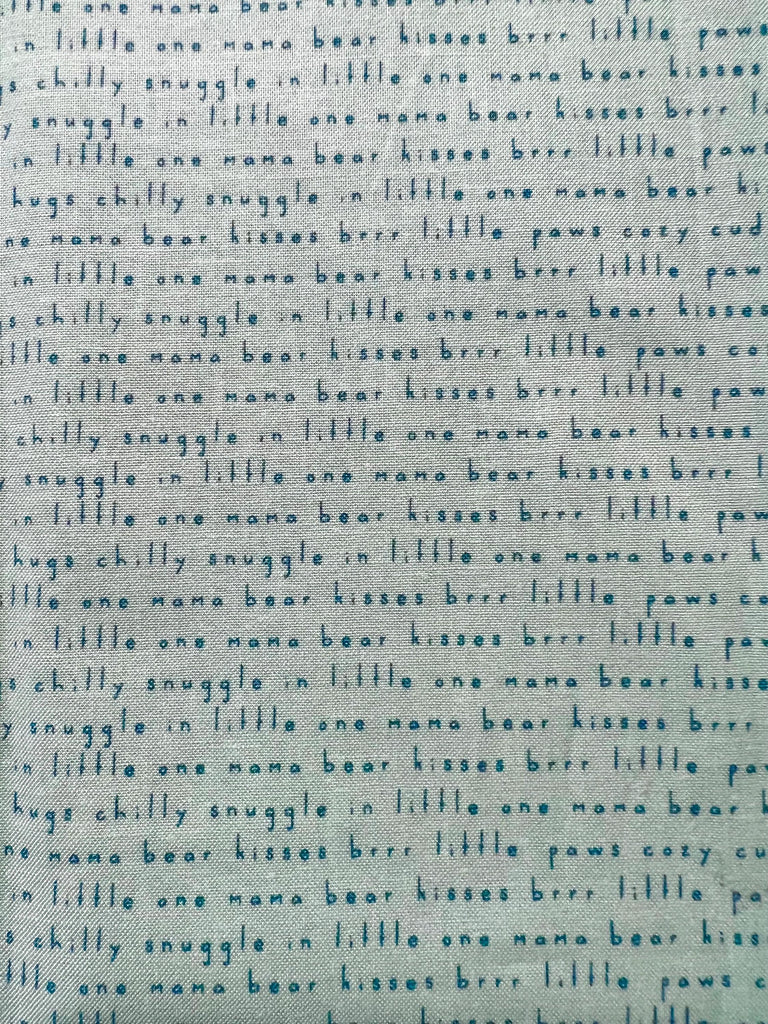 little one mama bear kisses brrr little
in little one mama bear kisses brrr little paws
gs chilly snuggle in little one mama bear kisses
y snuggle in little one mama bear kisses brrr li
in little one mama bear kisses brrr little paws
hugs chilly snuggle in little one mama bear ki
ne mama bear kisses brrr little paws cozy cud
in little one mama bear kisses brrr little paw
gs chilly snuggle in little one mama bear kisses
ittle one mama bear kisses brrr little paws co
in little one mama bear kisses brrr little paw
chilly snuggle in little one mama bear kisses
y snuggle in little one mama bear kisses brrr l
in little one mama bear kisses brrr little paw
hugs chilly snuggle in little one mama bear k
ittle one mama bear kisses brrr little paws co
in little one mama bear kisses brrr little paw
s chilly snuggle in little one mama bear kisse
y snuggle in little one mama bear kisses brrr
in little one mama bear kisses brrr little pa
hugs chilly snuggle in little one mama bear k
ne mama bear kisses brrr little paws cozy cu
in little one mama bear kisses brrr little pa
s chilly snuggle in little one mama bear kiss
ttle one mama bear kisses brrr little paws c
in little one mama bear kisses brrr little